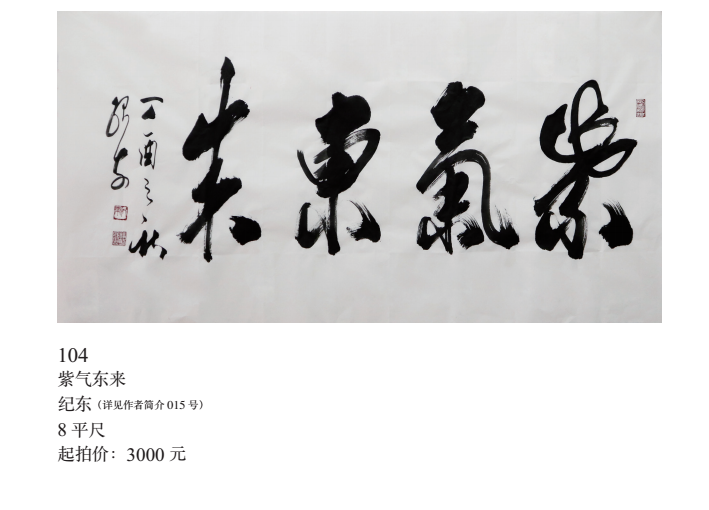 紫氣東来
丁酉之秋
纪东
104
紫气东来
纪东（详见作者简介 015 号）
8 平尺
起拍价：3000 元